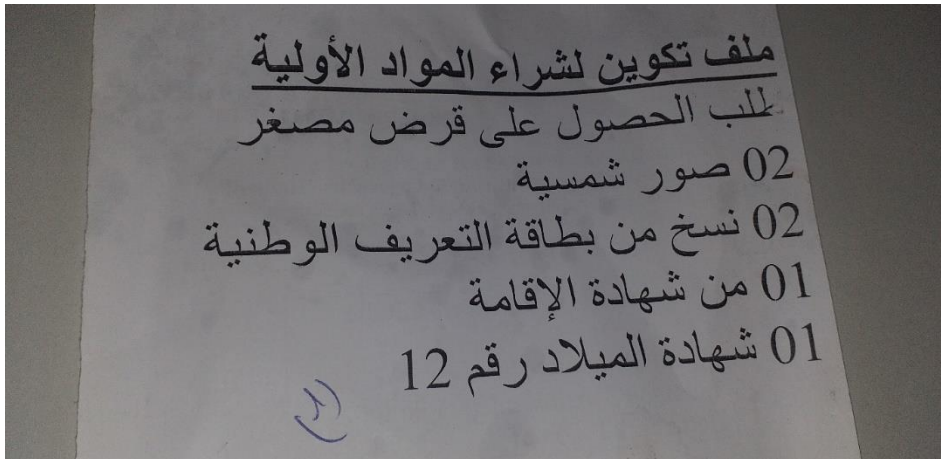 ملف تكوين لشراء المواد الأولية
طلب الحصول على قرض مصغر
02 صور شمسية
02 نسخ من بطاقة التعريف الوطنية
01 من شهادة الإقامة
01 شهادة الميلاد رقم 12